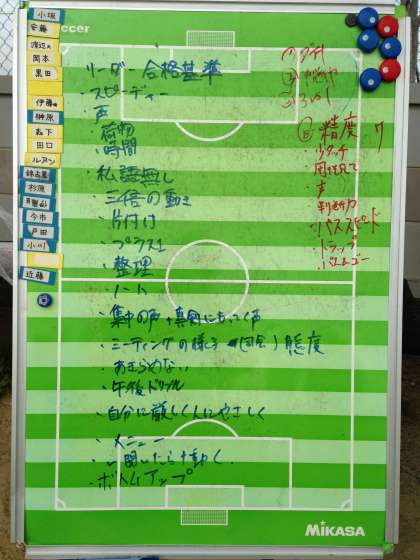 小坂
安藤
渡辺大
岡本
黒田
伊藤
榊原
森下
田口
ルアン
錦古里
杉原
今市
戸田
小川
近藤
soccer
リーダー 合格基準
・スピーディー
・声
・荷物
・時間
・私語無し
・三倍の動き
・片付け
・プラス1
・整理
・ノート
・集中の声+真剣にもっていく声
・ミーティングの様子 (図合) 態度
・あきらめない
・午後ドリブル
・自分に厳しく人にやさしく
・メニュー
・一聞いたら十動く
・ボトムアップ
① ダチ
精度
・タッチ
・声
・判断力
・パススピード
・トラップ
MIKASA